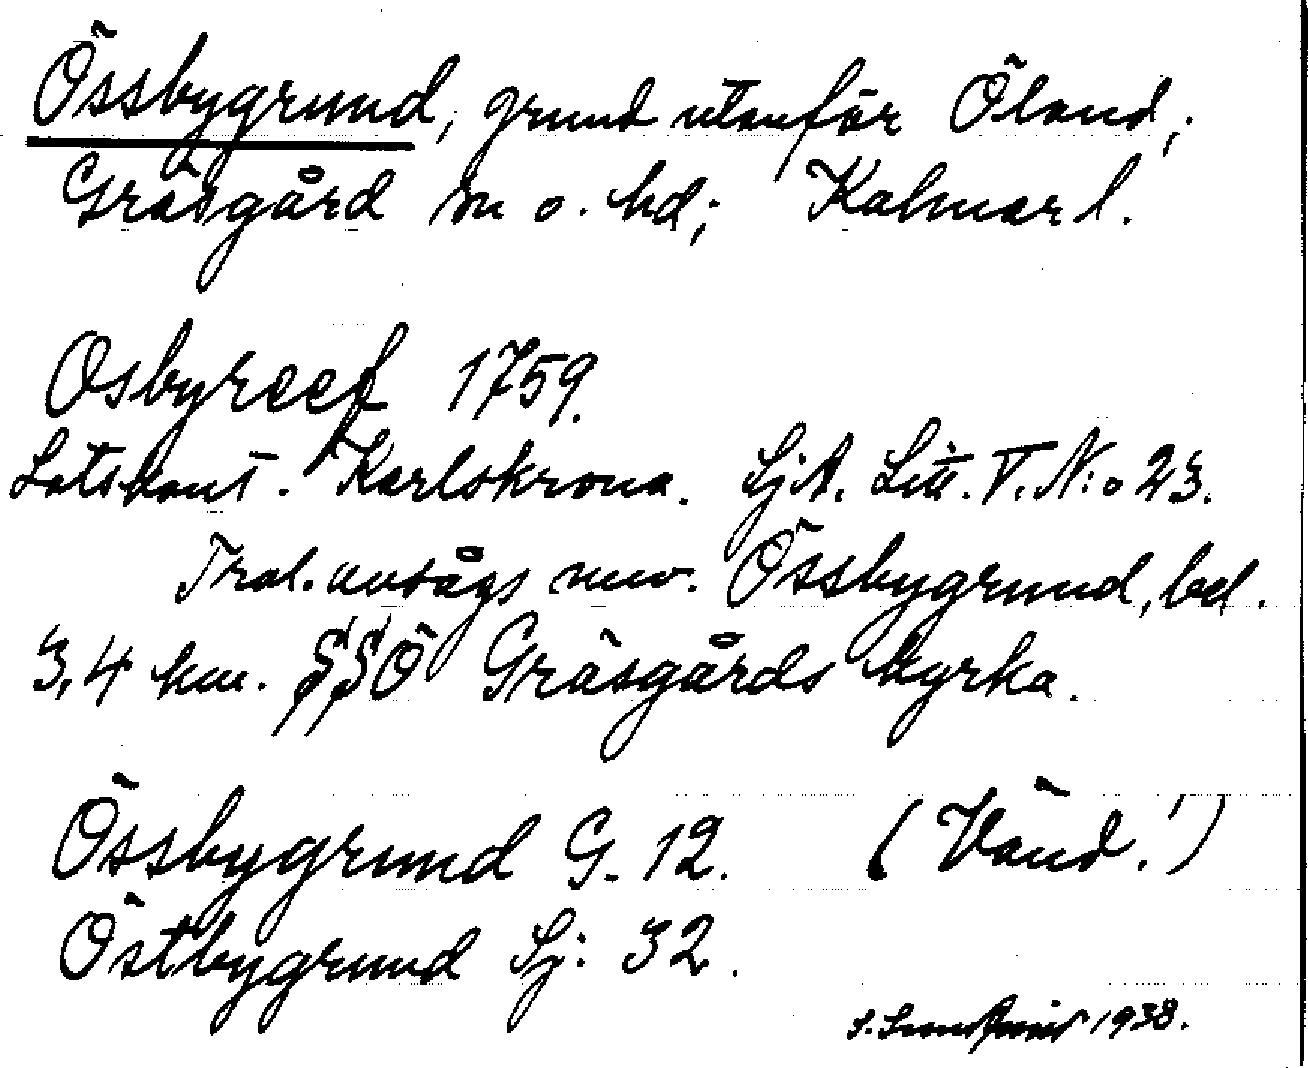 Össbygrund, grund utanför Öland,;
Gräsgård sn o. hd; Kalmar l.
Osbyreef 1759.
Lotskont. Karlskrona. SjA. Litt. T. N:o 23.
Trol. avsågs nuv. Össbygrund, bel.
3,4 km. SSÖ Gräsgårds kyrka.
Össbygrund G. 12. (Vänd!)
Östbygrund Sj: 32.
1938.